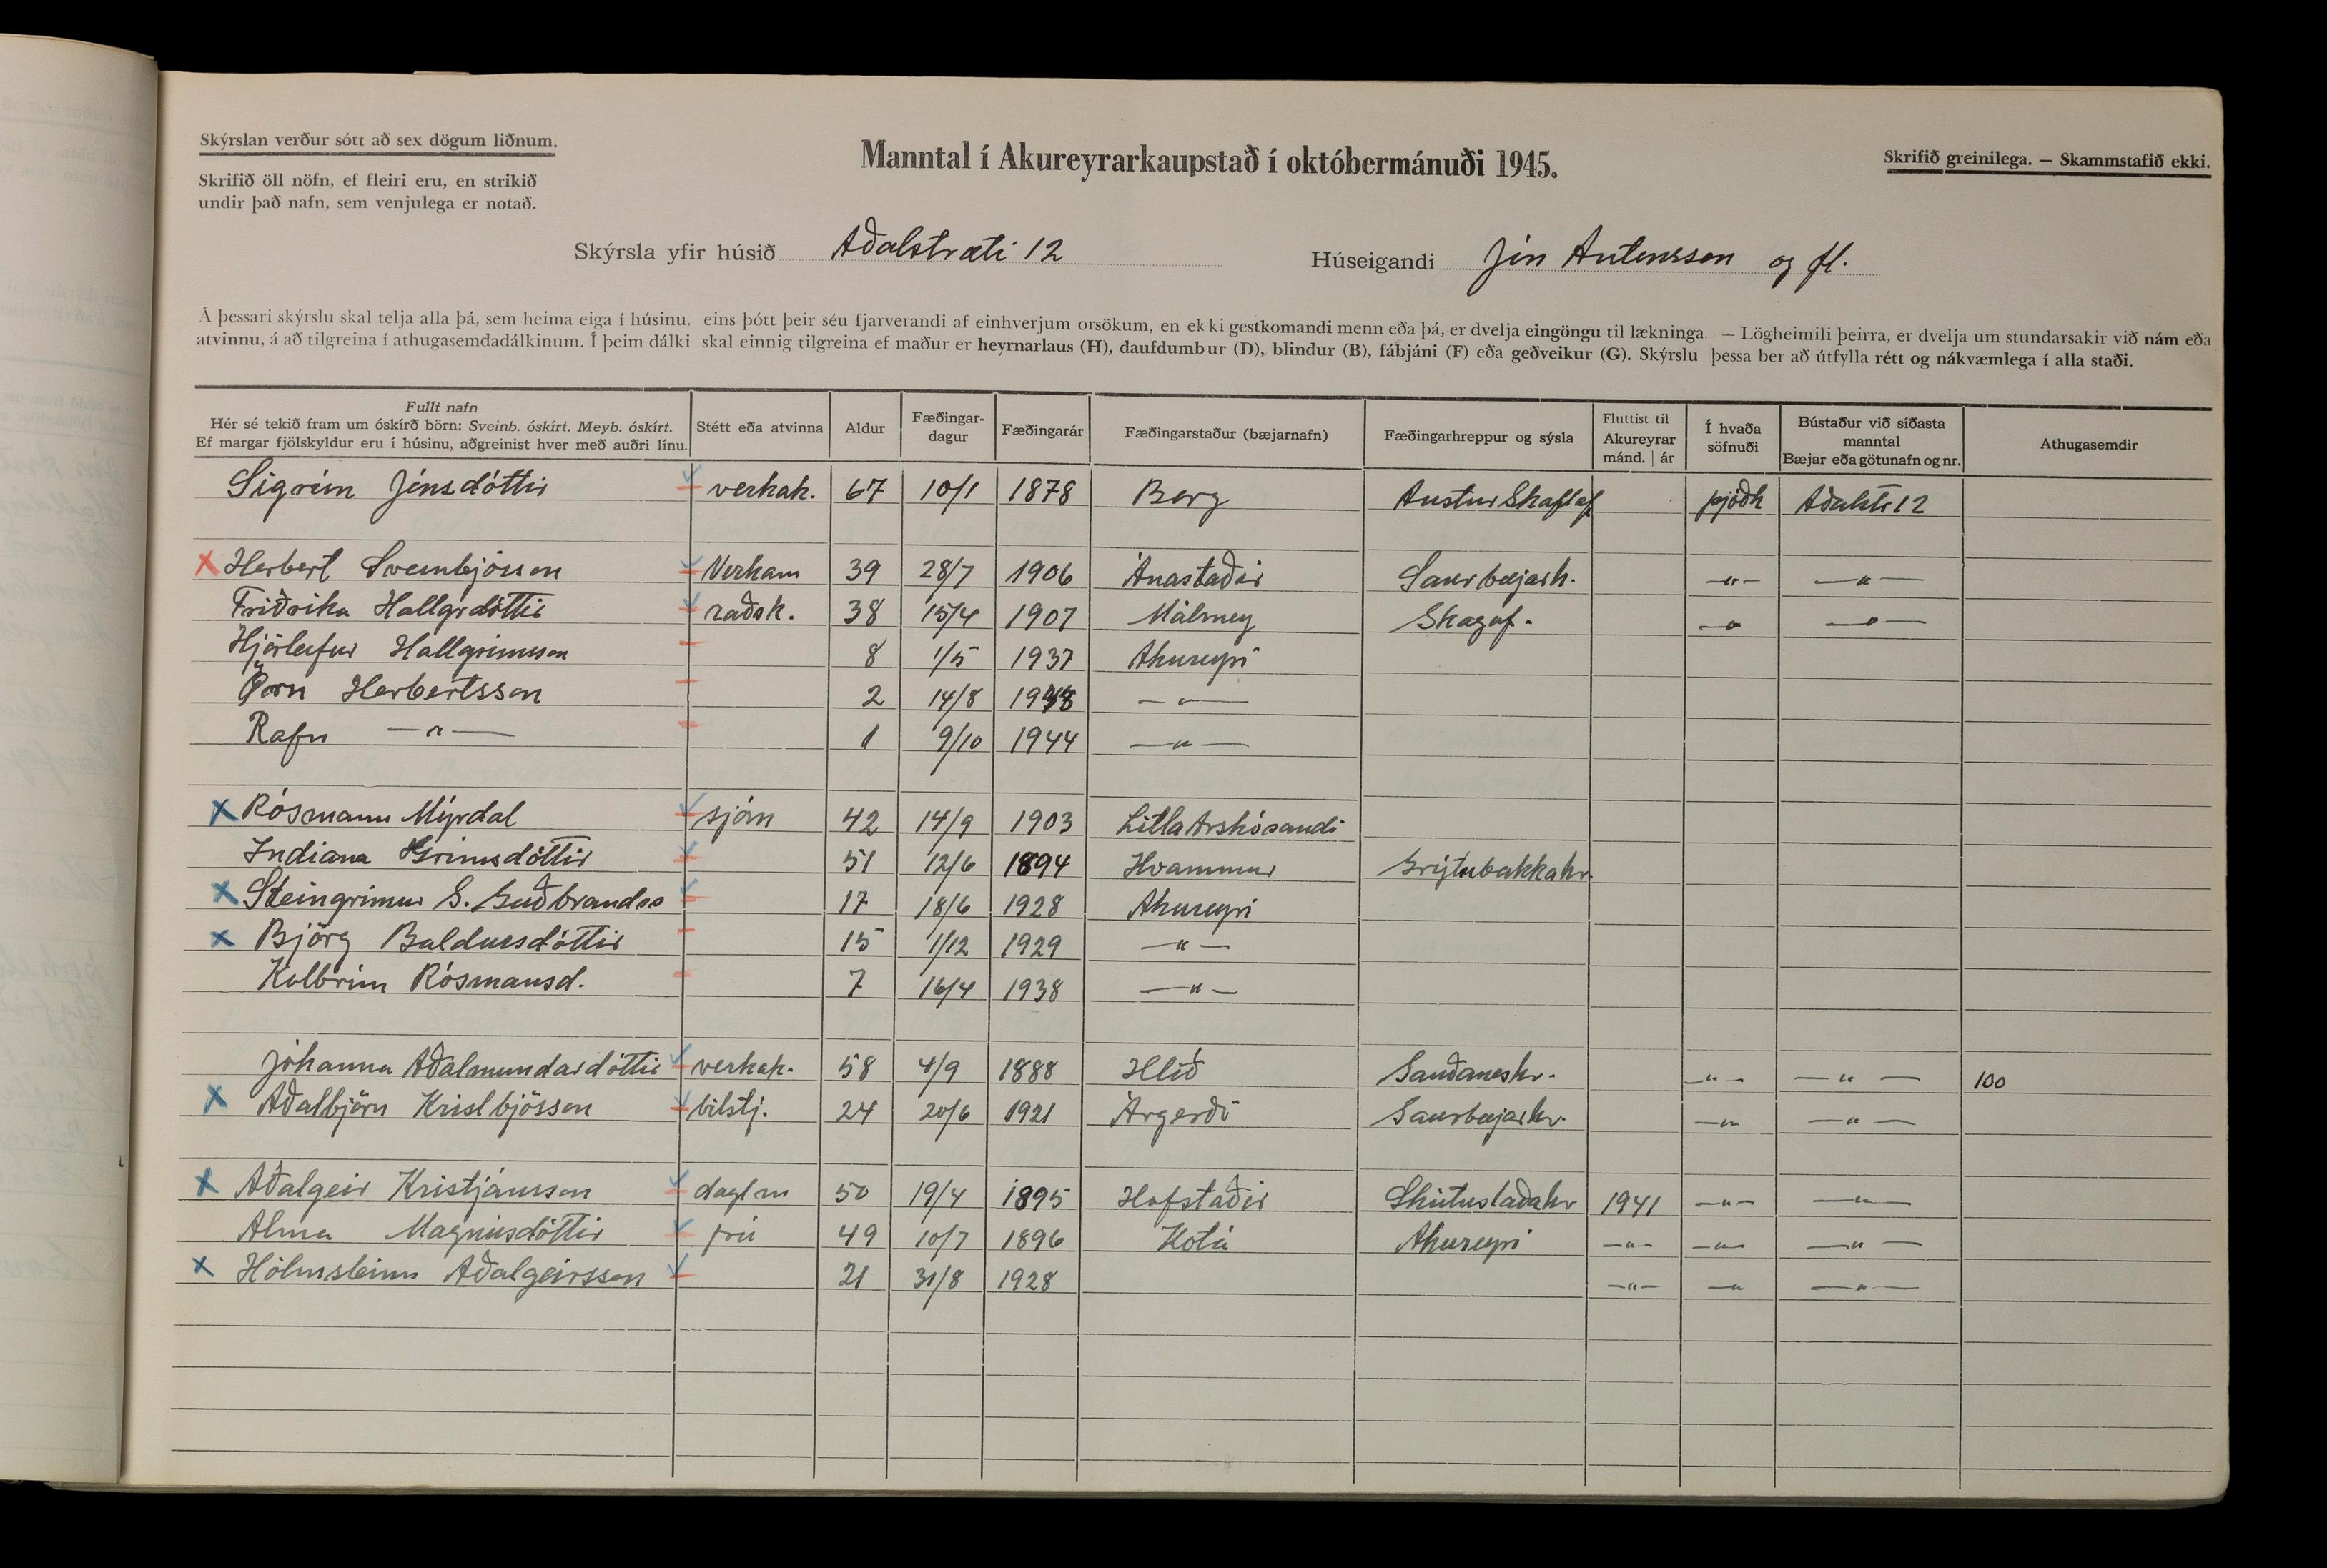 Skýrslan verður sótt að sex dögum liðnum.
Skrifið öll nöfn, ef fleiri eru, en strikið
undir það nafn, sem venjulega er notað.
Manntal í Akureyrarkaupstað í októbermánuði 1945.
Skrifið greinilega. — Skammstafið ekki.
Skýrsla yfir húsið Aðalstræti 12 Húseigandi Jón Antonsson og fl.
Á þessari skýrslu skal telja alla þá, sem heima eiga í húsinu, eins þótt þeir séu fjarverandi af einhverjum orsökum, en ekki gestkomandi menn eða þá, er dvelja eingöngu til lækninga. — Lögheimili þeirra, er dvelja um stundarsakir við nám eða
atvinnu, á að tilgreina í athugasemdadálkinum. Í þeim dálki skal einnig tilgreina ef maður er heyrnarlaus (H), daufdumbur (D), blindur (B), fábjáni (F) eða geðveikur (G). Skýrslu þessa ber að útfylla rétt og nákvæmlega í alla staði.
Fullt nafn
Hér sé tekið fram um óskírð börn: Sveinb. óskírt. Meyb. óskírt.
Ef margar fjölskyldur eru í húsinu, aðgreinist hver með auðri línu.
Stétt eða atvinna
Aldur
Fæðingar-
dagur
Fæðingarár
Fæðingarstaður (bæjarnafn)
Fæðingarhreppur og sýsla
Fluttist til
Akureyrar
mánd. | ár
Í hvaða
söfnuði
Bústaður við síðasta
manntal
Bæjar eða götunafn og nr.
Athugasemdir
Sigrún Jónsdóttir verkak. 67 10/1 1878 Borg Austur Skaftaf þjóðk Aðalstr 12
Herbert Sveinbjössen Verkam 39 28/7 1906 Ánastaðir Saurbæjarh. —"— —"—
Friðrika Hallgrdóttir raðsk. 38 15/4 1907 Málmey Skagaf. —"— —"—
Hjörleifur Hallgrimsson 8 1/5 1937 Akureyri
Örn Herbertsson 2 14/8 —"—
Rafn —"— 1 9/10 1944 —"—
Rósmann Mýrdal sjóm 42 14/9 1903 Litla Arskósandi
Indiana Grimsdóttir 51 12/6 1894 Hvammur Grýtubakkahr.
Steingrimur S. Guðbrandss 17 18/6 1928 Akureyri
Björg Baldursdóttir 15 1/12 1929 —"—
Kolbrún Rósmansd. 7 16/4 1938 —"—
Jóhanna Aðalmundardóttir verkak. 58 4/9 1888 Hlíð Sauðaneshr. —"— —"— 100
Aðalbjörn Kristbjössen bílstj. 24 20/6 1921 Árgerði Saurbæjarhr. —"— —"—
Aðalgeir Kristjánsson daglm 50 19/4 1895 Hofstaðir Skútustaðahr 1941 —"— —"—
Alma Magnúsdóttir frú 49 10/7 1896 Kotá Akureyri —"— —"— —"—
Hólmsteinn Aðalgeirsson 21 31/8 1928 —"— —"— —"—